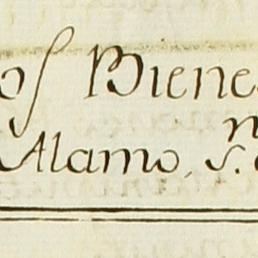 os Biene
Alamo, S.